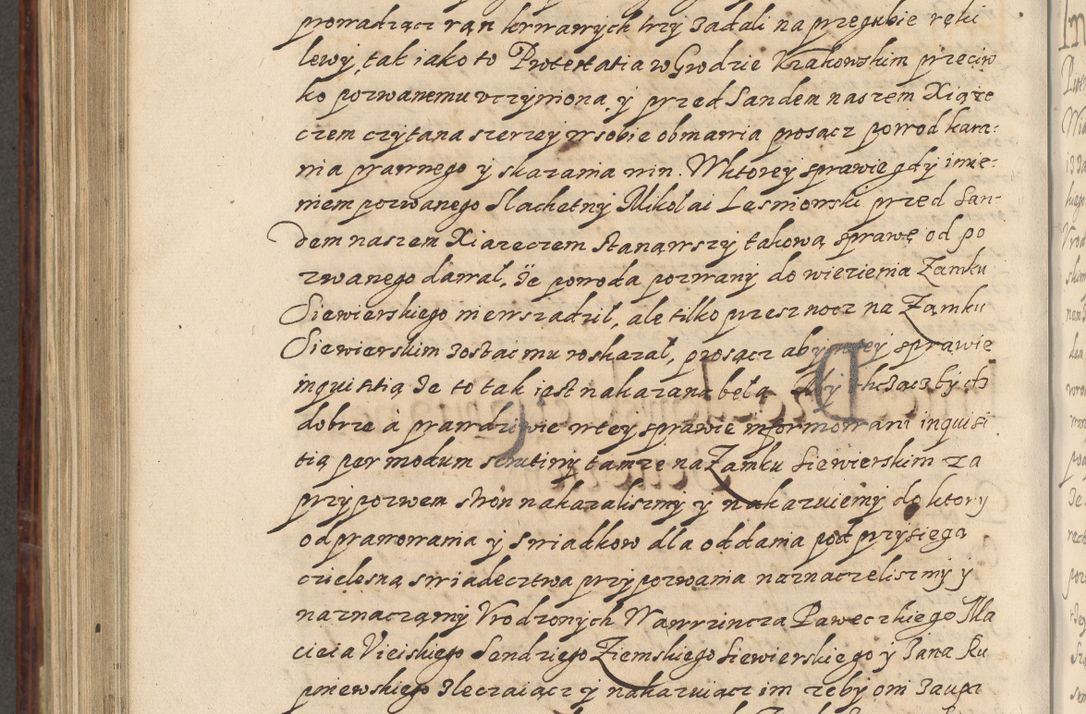 prowadząc ran krwawych trzy zadali na przegubie ręki
lewy, tak iako to Protestatia w Grodzie Krakowskim przeciw
ko pozwanemu vczyniona, y przed Sandem naszem Xiąże
czem czytana szerzey w sobie obmawia prosącz powod kara-
nia prawnego y skazania win. W ktorey sprawie gdy imie-
niem pozwanego Slachetny Mikołai Lesniowski przed San-
dem naszem Xiażeczem stanąwszy takową sprawę od po
zwanego dawał, że powoda pozwany do wiezienia Zamku
Siewierskiego nie wsżadził, ale tilko przesz nocz na Zamku
Siewierskim zostac mu roskazał, prosącz aby w tey sprawie
inquisitią że to tak iast nakazana beła
dobrze a prawdziwie w tey sprawie informowani inquisi
tią per modum scrutiny tamze na Zamku Siewierskim za
przypozwem stron nakazalismy y nakazuiemy do ktory
odprawowania y swiadkow dla oddania pod przysięgą
czielesną swiadecztwa przypozwania naznaczelismy y
naznaczamy Vrodzonych Wawrzincza Paweczkiego Ma
cieia Vieiskiego Sendziego Ziemskiego Siewierskiego y Jana Ru
pniewskiego zleczaiącz y nakazuiącz im zeby oni zaupr